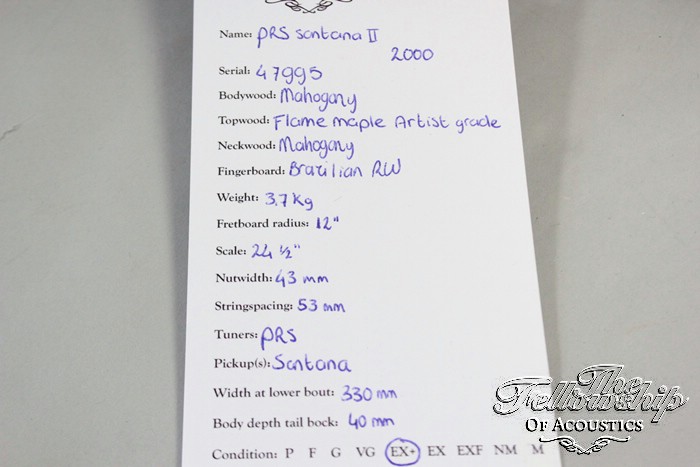 Name: PRS Santana II
2000
Serial: 47995
Bodywood: Mahogany
Topwood: Flame maple Artist grade
Neckwood: Mahogany
Fingerboard: Brazilian RW
Weight: 3.7 Kg
Fretboard radius: 12"
Scale: 24 ½"
Nutwidth: 43 mm
Stringspacing: 53 mm
Tuners: PRS
Pickup(s): Santana
Width at lower bout: 330 mm
Body depth tail bock: 40 mm
Condition: P F G VG EX+ EX EXF NM M
The
Fellowship
Of Acoustics